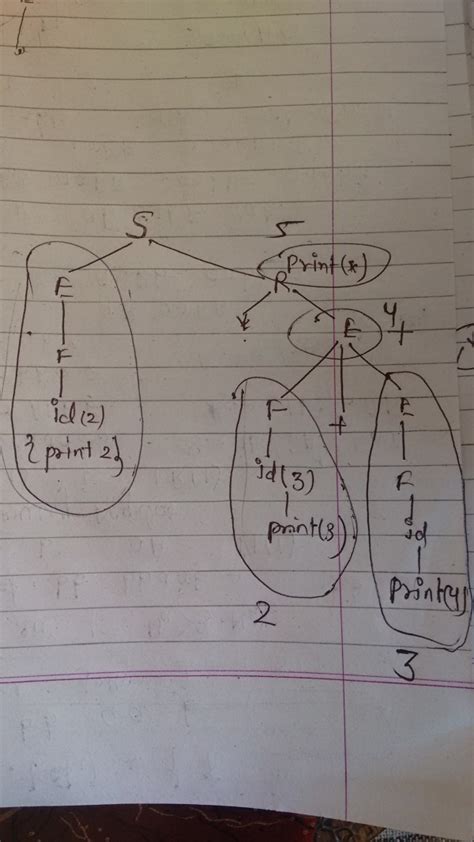 S
5
print(*)
E
R
*
E
4
+
F
F
+
E
id(2)
{print 2}
id(3)
F
print(3)
id
print(4)
2
3